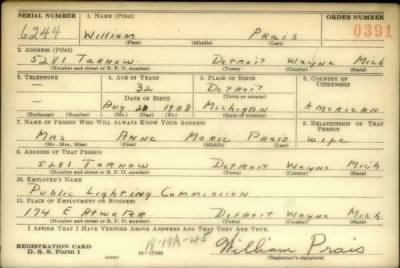 SERIAL NUMBER 1. NAME (Print) ORDER NUMBER
6244 William Prais 0391
(First) (Middle) (Last)
2. ADDRESS (Print)
5281 Tarnow Detroit Wayne Mich
(Number and street or R. F. D. number) (Town) (County) (State)
3. TELEPHONE 4. AGE IN YEARS 5. PLACE OF BIRTH 6. COUNTRY OF CITIZENSHIP
— 32 Detroit
DATE OF BIRTH
Aug 1908 Michigan American
(Mo.) (Day) (Yr.) (State or country)
7. NAME OF PERSON WHO WILL ALWAYS KNOW YOUR ADDRESS 8. RELATIONSHIP OF THAT PERSON
Mrs Anne Marie Prais Wife
(Mr., Mrs., Miss) (First) (Middle) (Last)
9. ADDRESS OF THAT PERSON
5281 Tarnow Detroit Wayne Mich
(Number and street or R. F. D. number) (Town) (County) (State)
10. EMPLOYER'S NAME
Public Lighting Commission
11. PLACE OF EMPLOYMENT OR BUSINESS
174 E Atwater Detroit Wayne Mich.
(Number and street or R. F. D. number) (Town) (County) (State)
I AFFIRM THAT I HAVE VERIFIED ABOVE ANSWERS AND THAT THEY ARE TRUE.
REGISTRATION CARD
D. S. S. Form 1 William Prais
(over) (Registrant's signature)